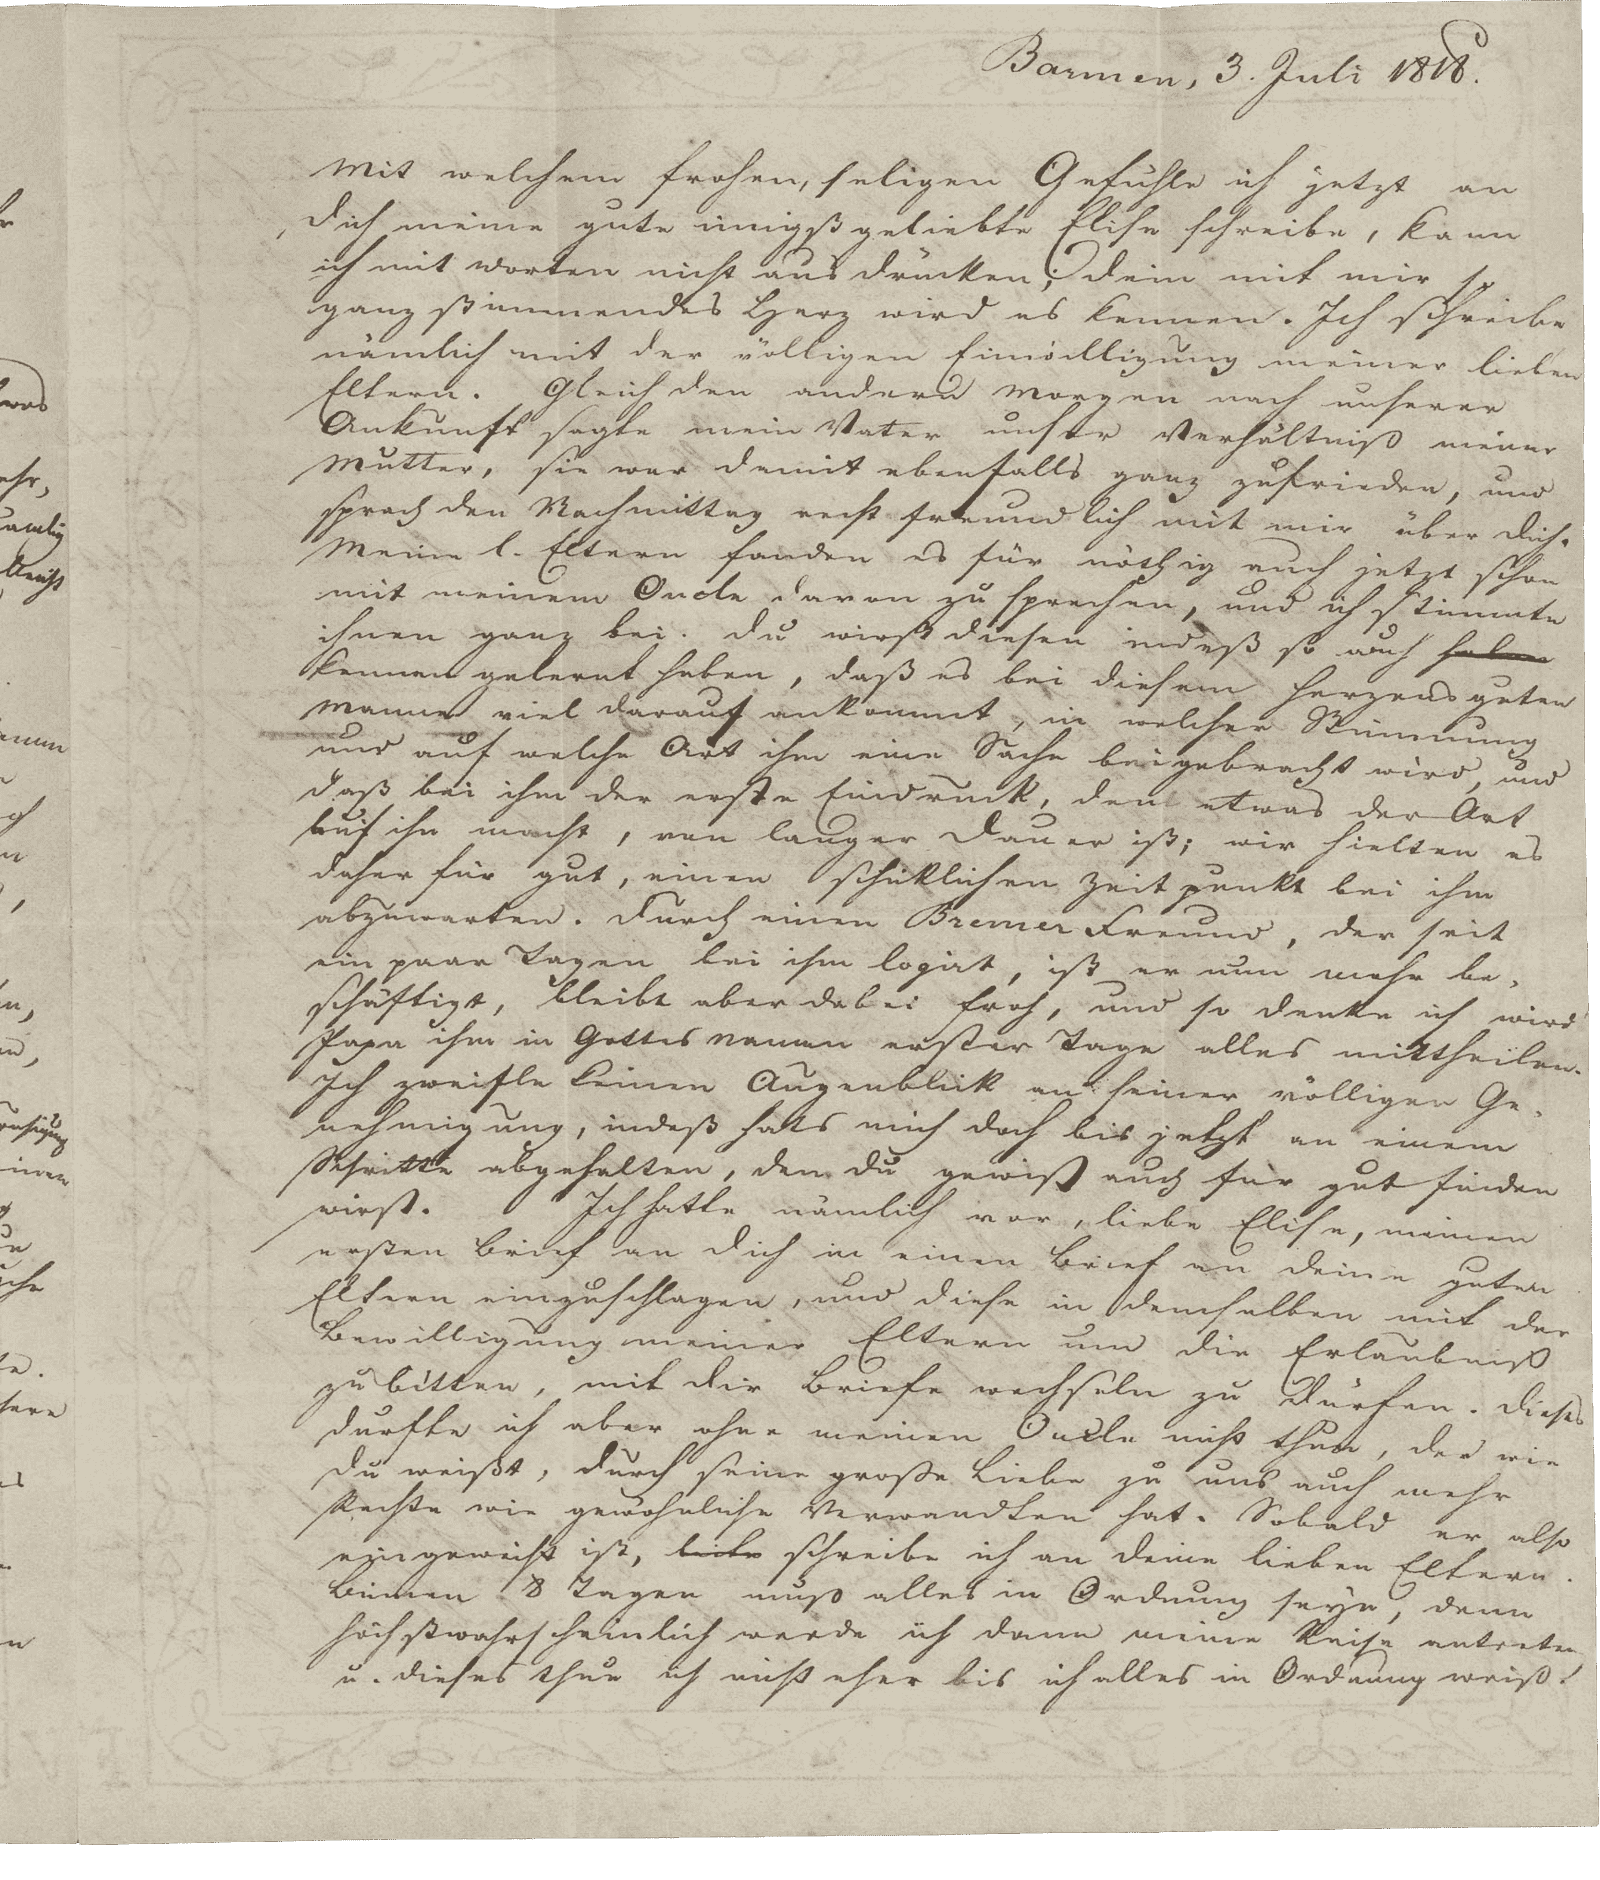 Barmen, 3. Juli 1818.
Mit welchem frohen, seligen Gefühle ich jetzt an
dich meine gute innigst geliebte Elise schreibe, kann
ich mit Worten nicht ausdrücken; dein mit mir so
ganz stimmendes Herz wird es kennen. Ich schreibe
nämlich mit der völligen Einwilligung meiner lieben
Eltern. Gleich den andern Morgen nach unserer
Ankunft sagte mein Vater unser Verhältniß meiner
Mutter, sie war damit ebenfalls ganz zufrieden, und
sprach den Nachmittag recht freundlich mit mir über dich.
Meine l. Eltern fanden es für nöthig auch jetzt schon
mit meinem Oncle davon zu sprechen, und ich stimmte
ihnen ganz bei. Du wirst diesen indeß so auch haben
kennen gelernt haben, daß es bei diesem herzensguten
Manne viel darauf ankommt, in welcher Stimmung
und auf welche Art ihm eine Sache beigebracht wird, und
daß bei ihm der erste Eindruck, den etwas der Art
auf ihn macht, von langer Dauer ist; wir hielten es
daher für gut, einen schicklichen Zeitpunkt bei ihm
abzuwarten. Durch einen Bremer Freund, der seit
ein paar Tagen bei ihm logirt, ist er nun mehr be-
schäftigt, bleibt aber dabei froh, und so denke ich wird
Papa ihm in Gottes Namen erster Tage alles mittheilen.
Ich zweifle keinen Augenblick an seiner völligen Ge-
nehmigung, indeß hats mich doch bis jetzt an einem
Schritte abgehalten, den du gewiß auch für gut finden
wirst. Ich hatte nämlich vor, liebe Elise, meinen
ersten Brief an dich in einen Brief an deine guten
Eltern einzuschlagen, und diese in demselben mit der
Bewilligung meiner Eltern um die Erlaubniß
zu bitten, mit dir Briefe wechseln zu dürfen. Dieses
durfte ich aber ohne meinen Oncle nicht thun, der wie
du weißt, durch seine große Liebe zu uns auch mehr
Rechte wie gewöhnliche Verwandten hat. Sobald er also
eingeweiht ist, schreibe ich an deine lieben Eltern.
Binnen 8 Tagen muß alles in Ordnung seyn, denn
höchstwahrscheinlich werde ich dann meine Reise antreten
u. dieses thue ich nicht eher bis ich alles in Ordnung weiß.